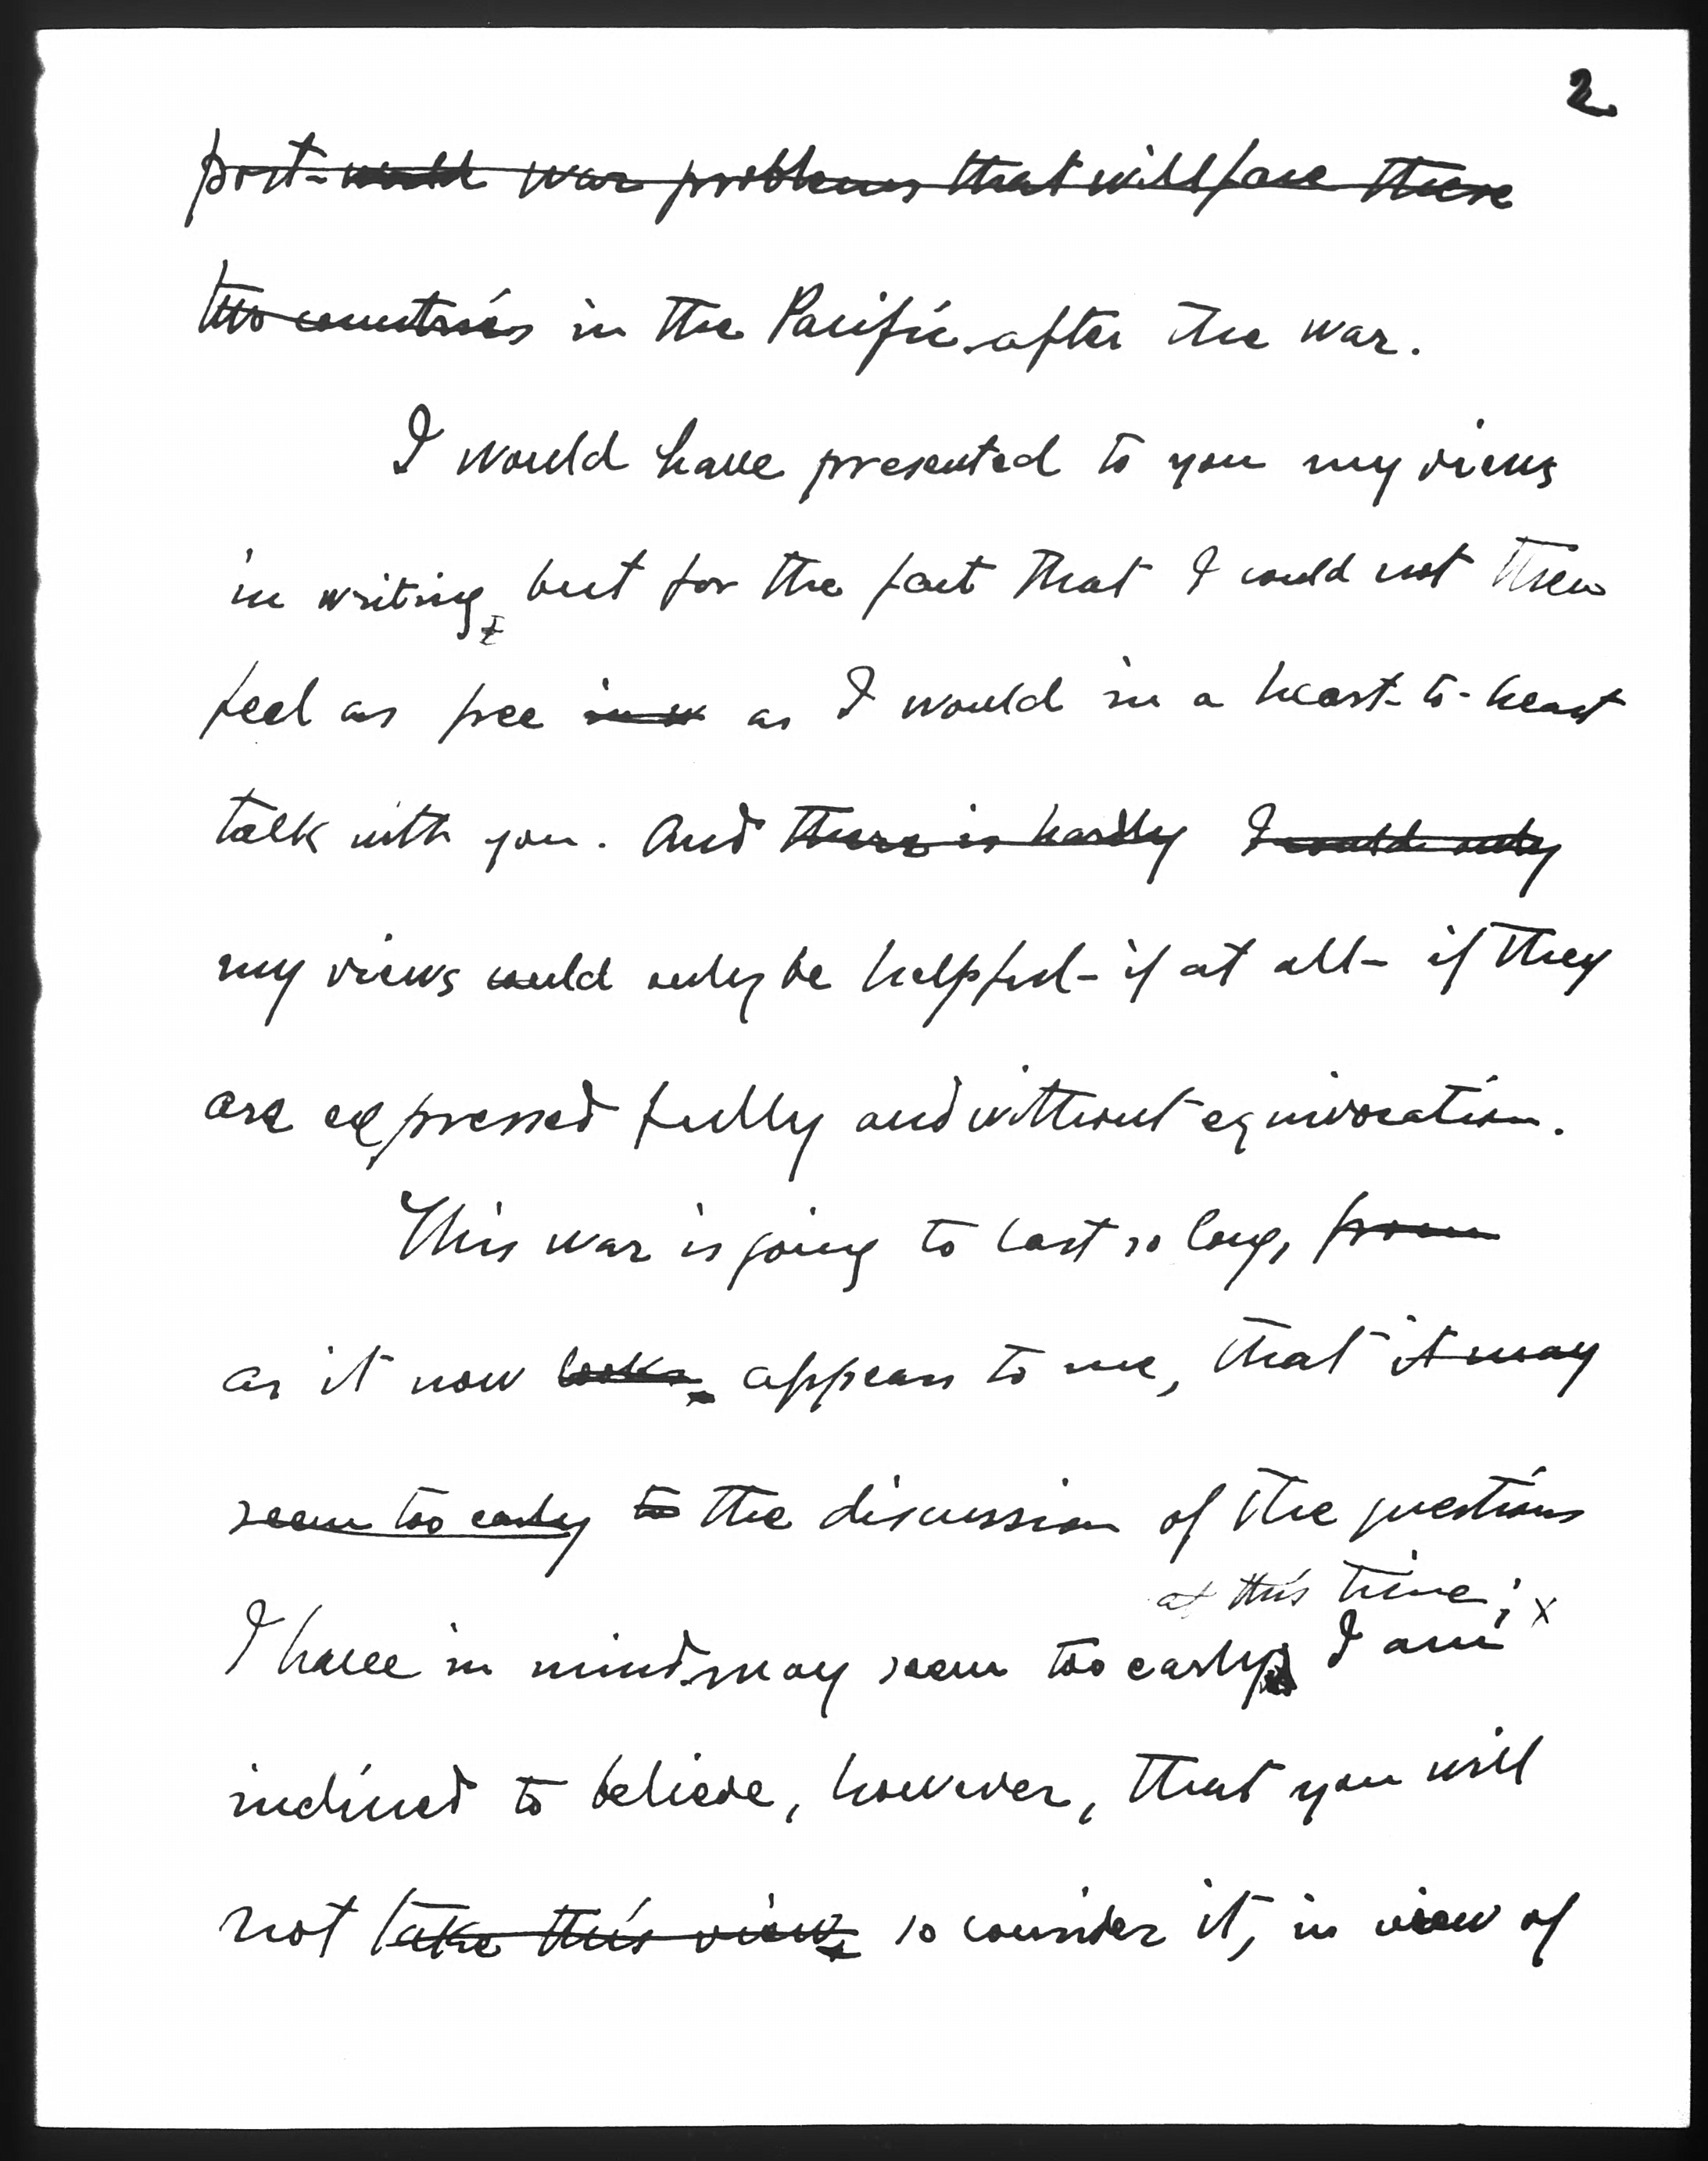 2
post-world war problems that will face these
two countries in the Pacific after the war.
I would have presented to you my views
in writing, but for the fact that I could not then
feel as free in w as I would in a heart-to-heart
talk with you. And there is hardly I could only
my views could only be helpful - if at all - if they
are expressed fully and without equivocation.
This war is going to last so long, from
as it now looks, appears to me, that it may
seem too early to the discussion of the questions
at this time; x
I have in mind may seem too early, I am
inclined to believe, however, that you will
not take this view, so consider it, in view of